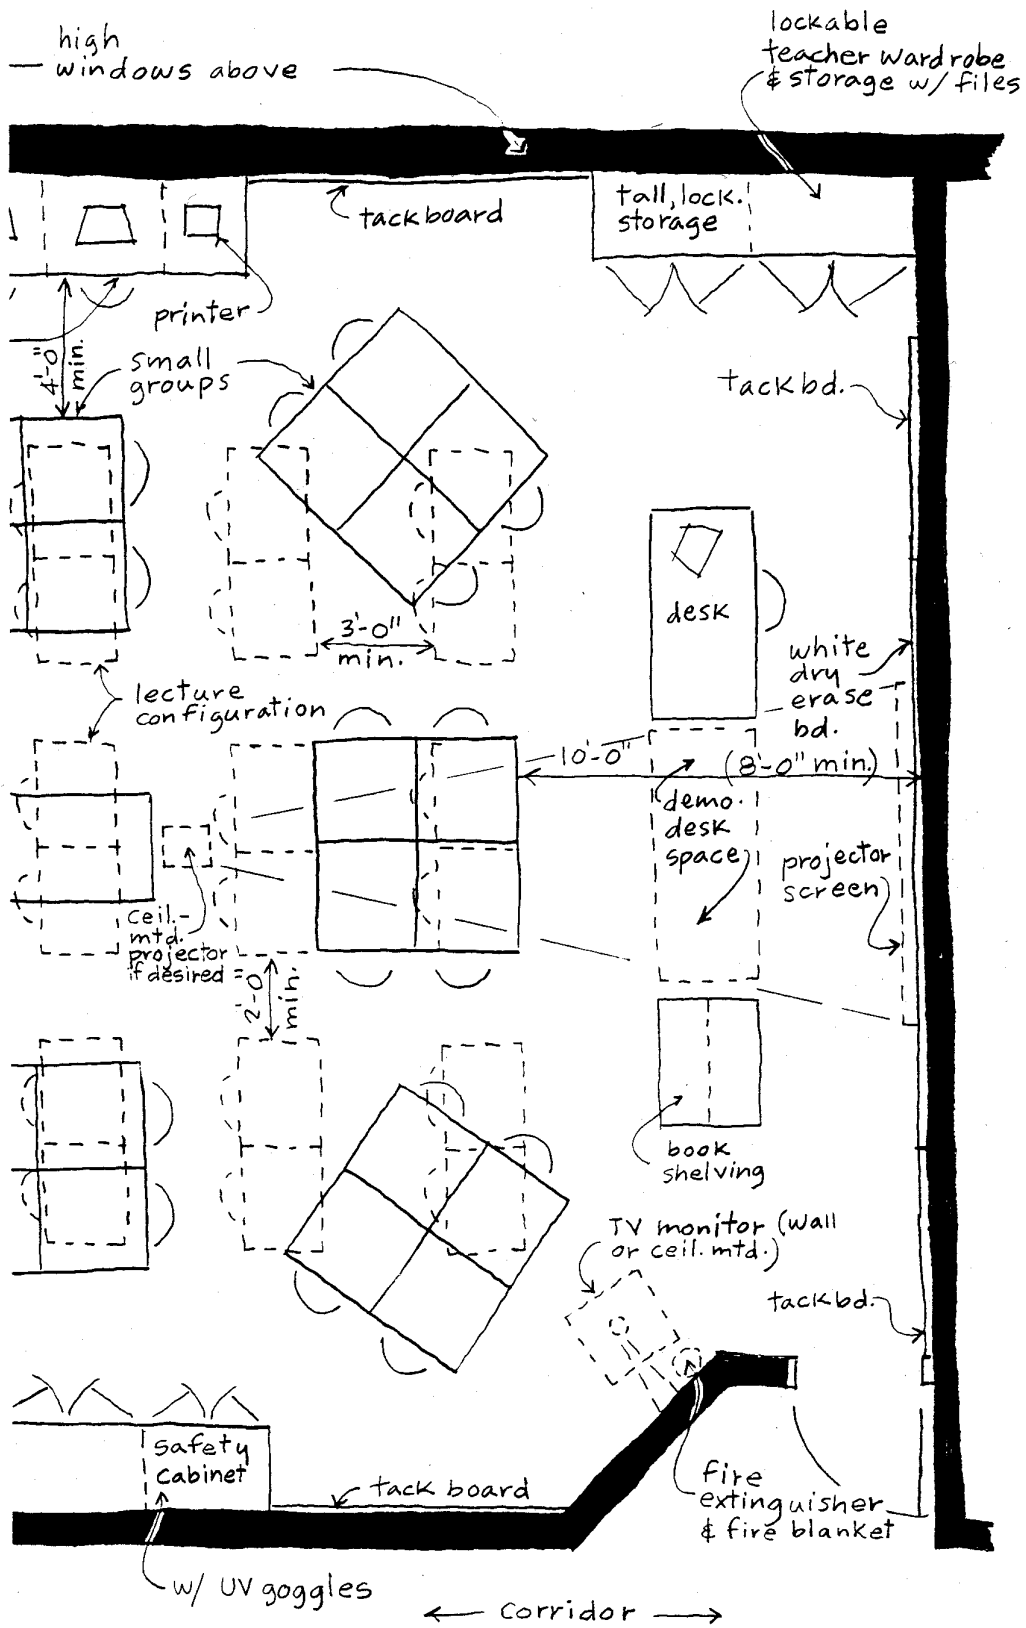 high
windows above
lockable
teacher wardrobe
& storage w/ files
tackboard
tall, lock.
storage
printer
4'-0"
min.
small
groups
tack bd.
desk
3'-0"
min.
white
dry
erase
bd.
lecture
configuration
10'-0"
(8'-0" min.)
demo.
desk
space
projector
screen
ceil.-
mtd.
projector
if desired
2'-0
min.
book
shelving
TV monitor (wall
or ceil. mtd.)
tack bd.
safety
cabinet
tack board
fire
extinguisher
& fire blanket
w/ UV goggles
corridor